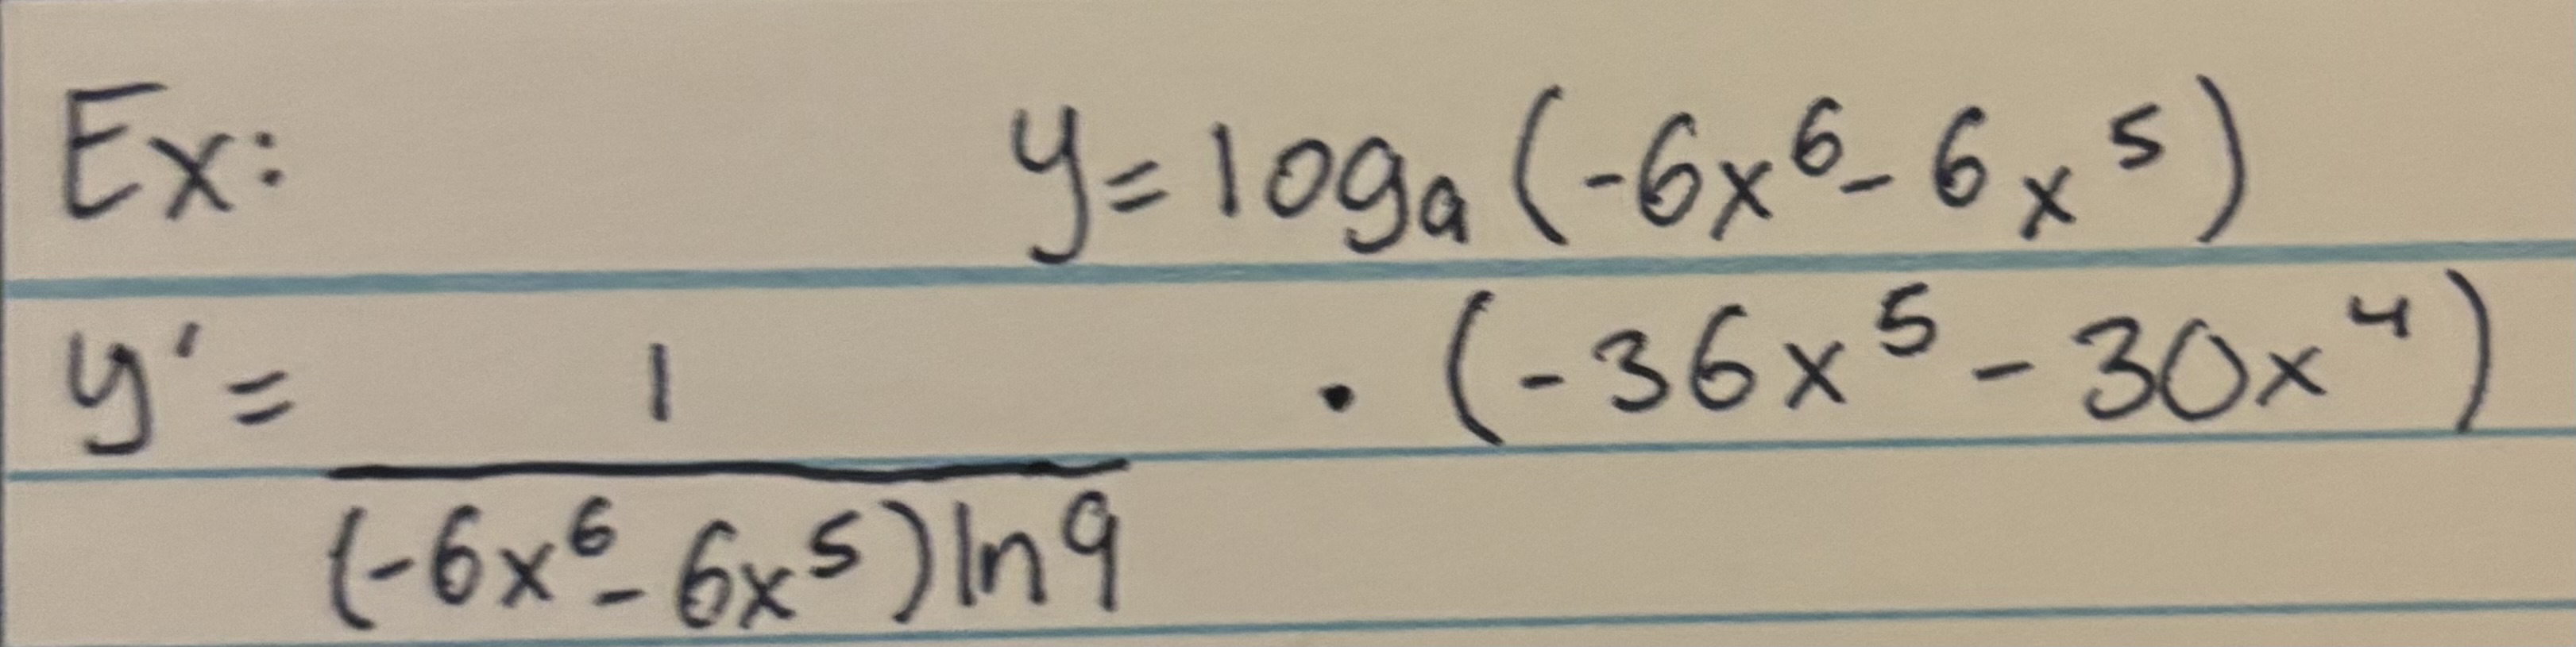 Ex: y = log₉(-6x⁶ - 6x⁵)
y' = 1/((-6x⁶ - 6x⁵) ln 9) · (-36x⁵ - 30x⁴)